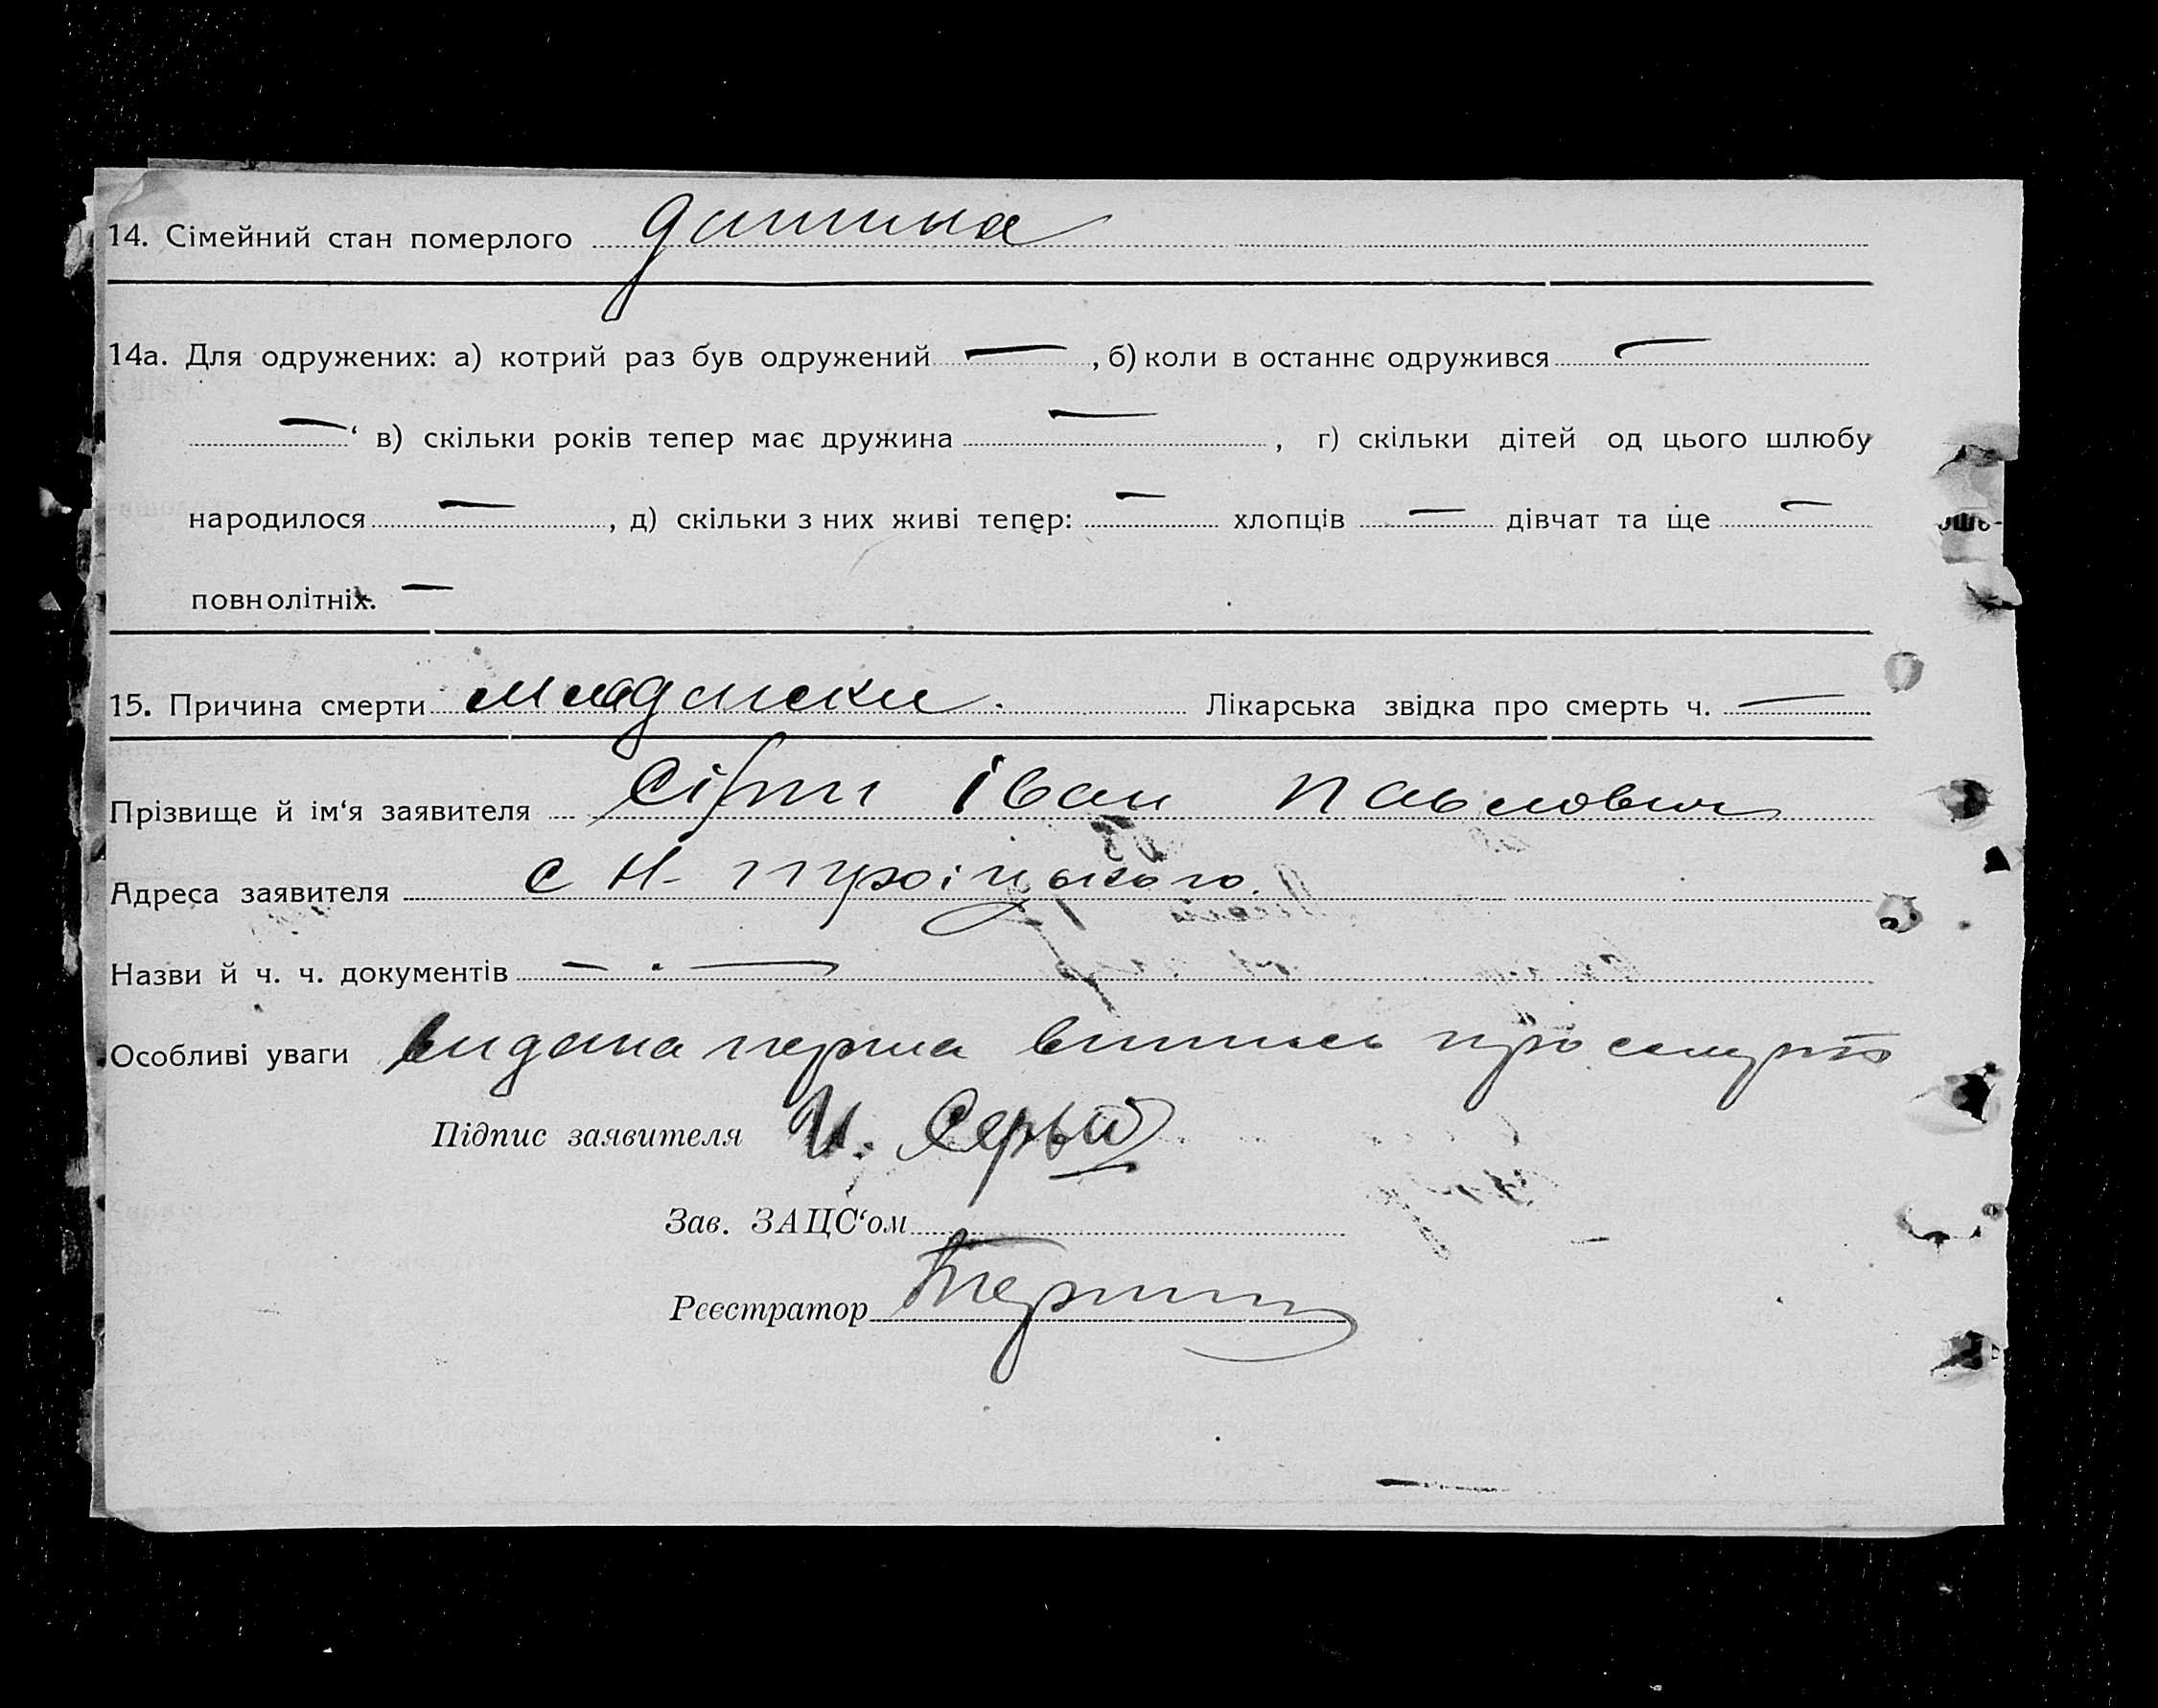 14. Сімейний стан померлого дитина
14а. Для одружених: а) котрий раз був одружений — , б) коли в останнє одружився —
— ‘ в) скільки років тепер має дружина — , г) скільки дітей од цього шлюбу
народилося — , д) скільки з них живі тепер: — хлопців — дівчат та ще —
повнолітніх. —
15. Причина смерти младенски. Лікарська звідка про смерть ч. —
Прізвище й ім‘я заявителя Сірий Іван Павлович
Адреса заявителя с Н- троіцького.
Назви й ч. ч. документів — . —
Особливі уваги видана перша випись про смерть
Підпис заявителя И. Серый
Зав. ЗАЦС‘ом
Реєстратор